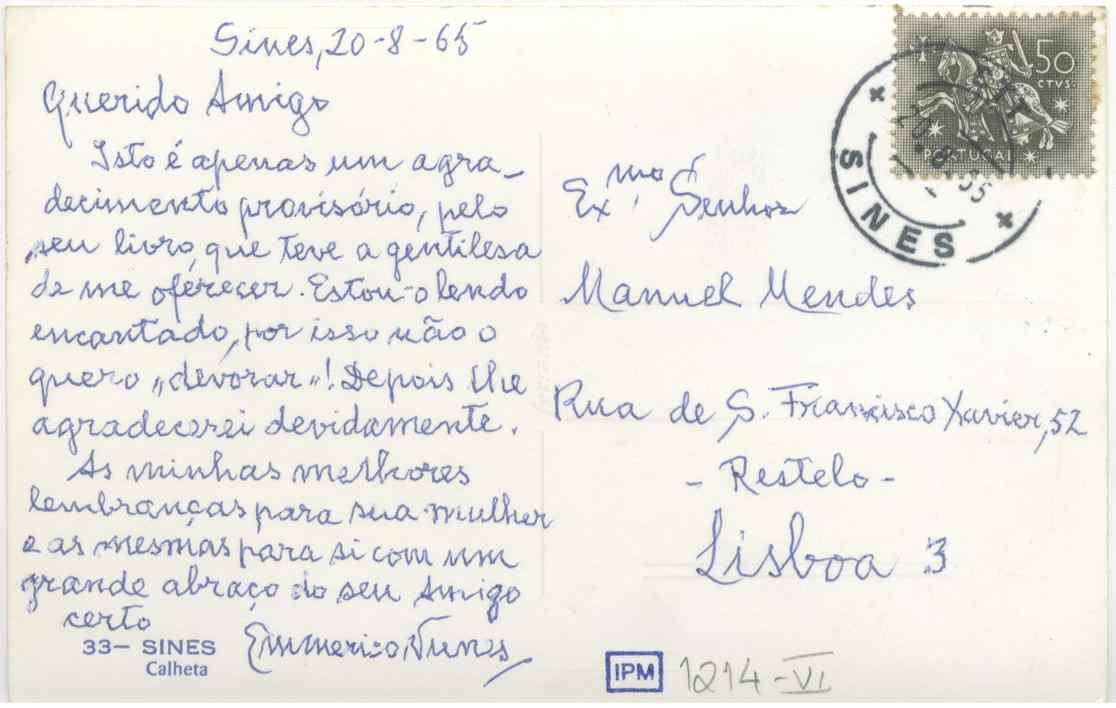 Sines, 20-8-65
Querido Amigo
Isto é apenas um agra-
decimento provisório, pelo
seu livro, que teve a gentilesa
de me oferecer. Estou-o lendo
encantado, por isso não o
quero „devorar"! Depois lhe
agradecerei devidamente.
As minhas melhores
lembranças para sua mulher
e as mesmas para si com um
grande abraço do seu Amigo
certo
Emmerico Nunes
33– SINES
Calheta
1$50
CTVS.
PORTUGAL
SINES
Ex.mo Senhor
Manuel Mendes
Rua de S. Francisco Xavier, 52
- Restelo -
Lisboa 3
IPM 1214-VI